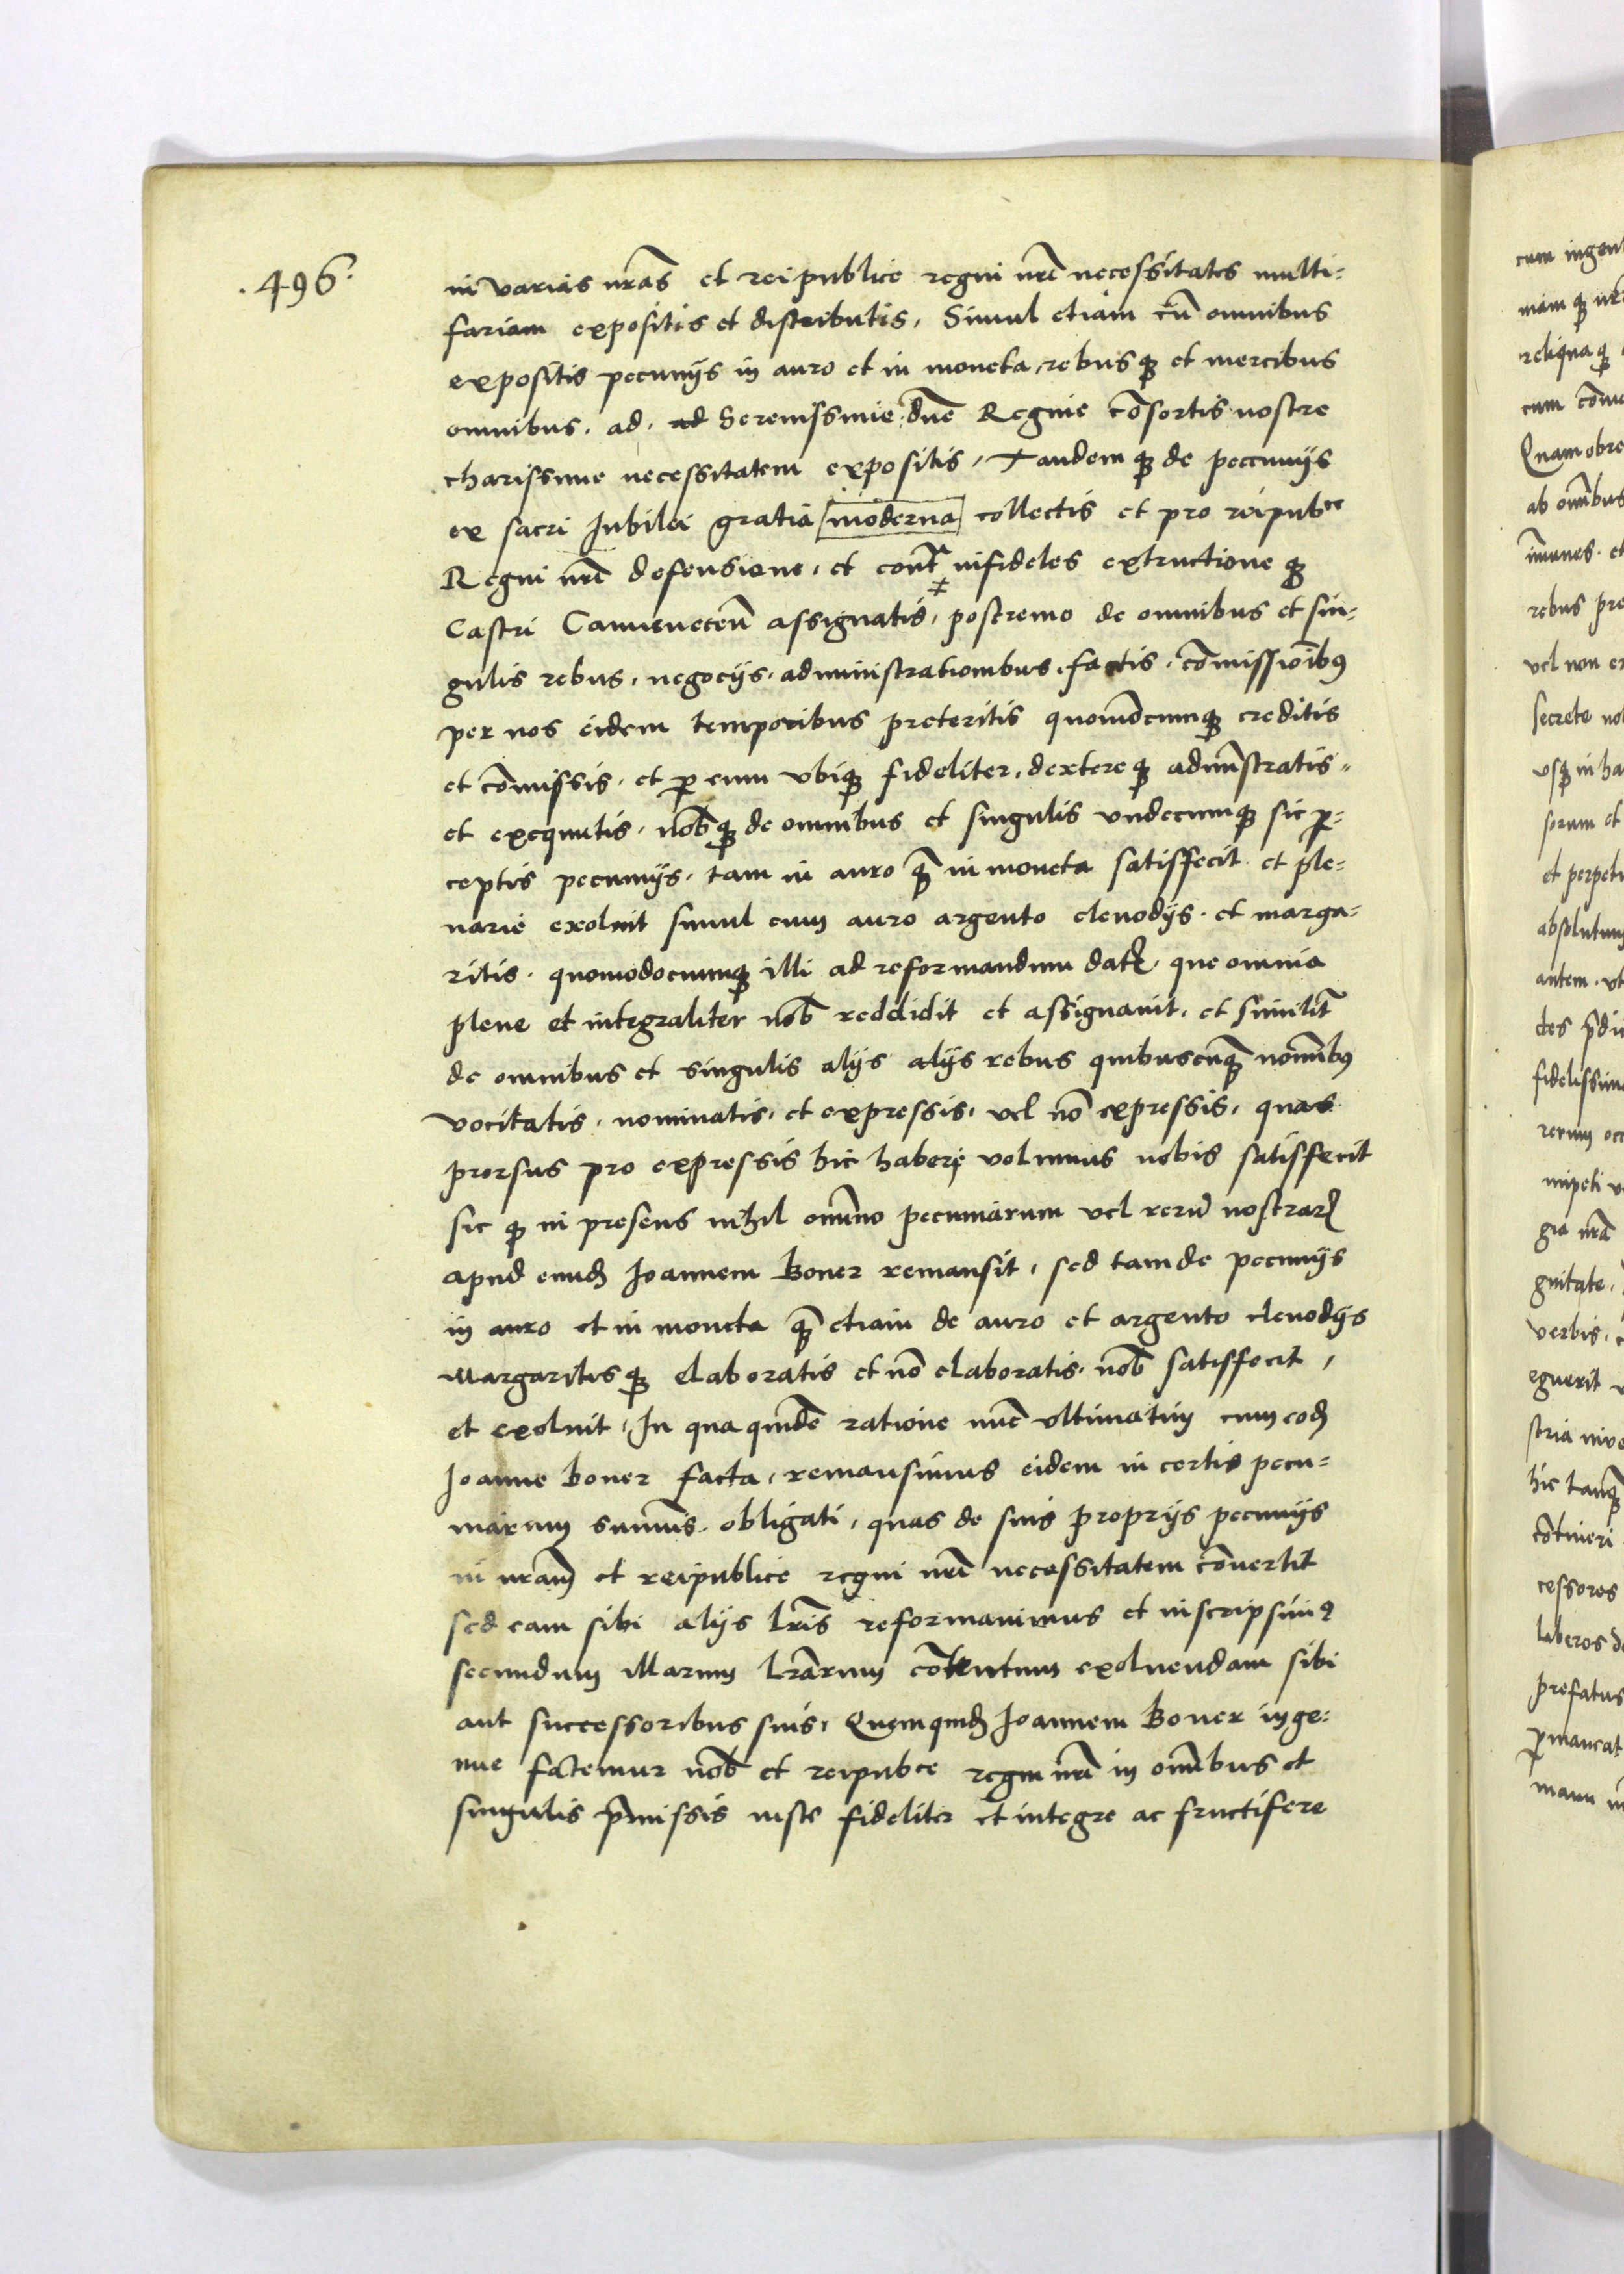 .496.
in varias nr̃as et reipublice regni nr̃i necessitates multi=
fariam expositis et distributis, Simul etiam cũ omnibus
expositis pecunijs in auro et in moneta, rebusq̃ et mercibus
omnibus. ad. ad Serenissime dñe Regine cõsortis nostre
charissime necessitatem expositis, Tandemq̃ de pecunijs
ex sacri Jubilei gratia moderna collectis et pro reipubce
Regni nr̃i defensione, et contᵃ infideles extructioneq̃
Castri Camieneceñ assignatis, ‡ postremo de omnibus et sin=
gulis rebus, negocijs, administrationibus, factis, cõmissiõibꝰ
per nos eidem temporibus preteritis quomõcumq̃ creditis
et cõmissis, et ꝑ eum vbiq̃ fideliter, dextereq̃ adminͥstratis
et exequutis, nob̃q̃ de omnibus et singulis vndecumq̃ sic ꝑ=
ceptis pecunijs, tam in auro q̃ in moneta satisfecit et ple=
narie exoluit simul cum auro argento clenodijs et marga=
ritis, quomodocumq̃ illi ad reformandum datꝭ, que omnia
plene et integraliter nob̃ reddidit et assignauit, et similit̃
de omnibus et singulis alijs alijs rebus quibuscũq̃ nomĩbꝰ
vocitatis, nominatis, et expressis, vel nõ expressis, quas
prorsus pro expressis hic haberi volumus nobis satisfecit
sic q̃ in presens nihil omĩno pecuniarum vel rerũ nostrarꝝ
apud eundẽ Joannem Boner remansit, sed tam de pecunijs
in auro et in moneta q̃ etiam de auro et argento clenodijs
Margaritisq̃ elaboratis et nõ elaboratis, nob̃ satisfecit,
et exoluit, In qua quidẽ ratione nũc vltimatim cum eodẽ
Joanne Boner facta, remansimus eidem in certis pecu=
niarum sum̃is obligati, quas de suis proprijs pecunijs
in nr̃am et reipublice regni nr̃i necessitatem cõuertit
sed eam sibi alijs lr̃is reformauimus et inscripsimꝰ
secundum illarum lr̃arum cõtentum exoluendam sibi
aut successoribus suis, Quemquidẽ Joannem Boner inge=
nue fatemur nob̃ et reipubce regni nr̃i in om̃ibus et
singulis p̃missis iuste fideliter et integre ac fructifere